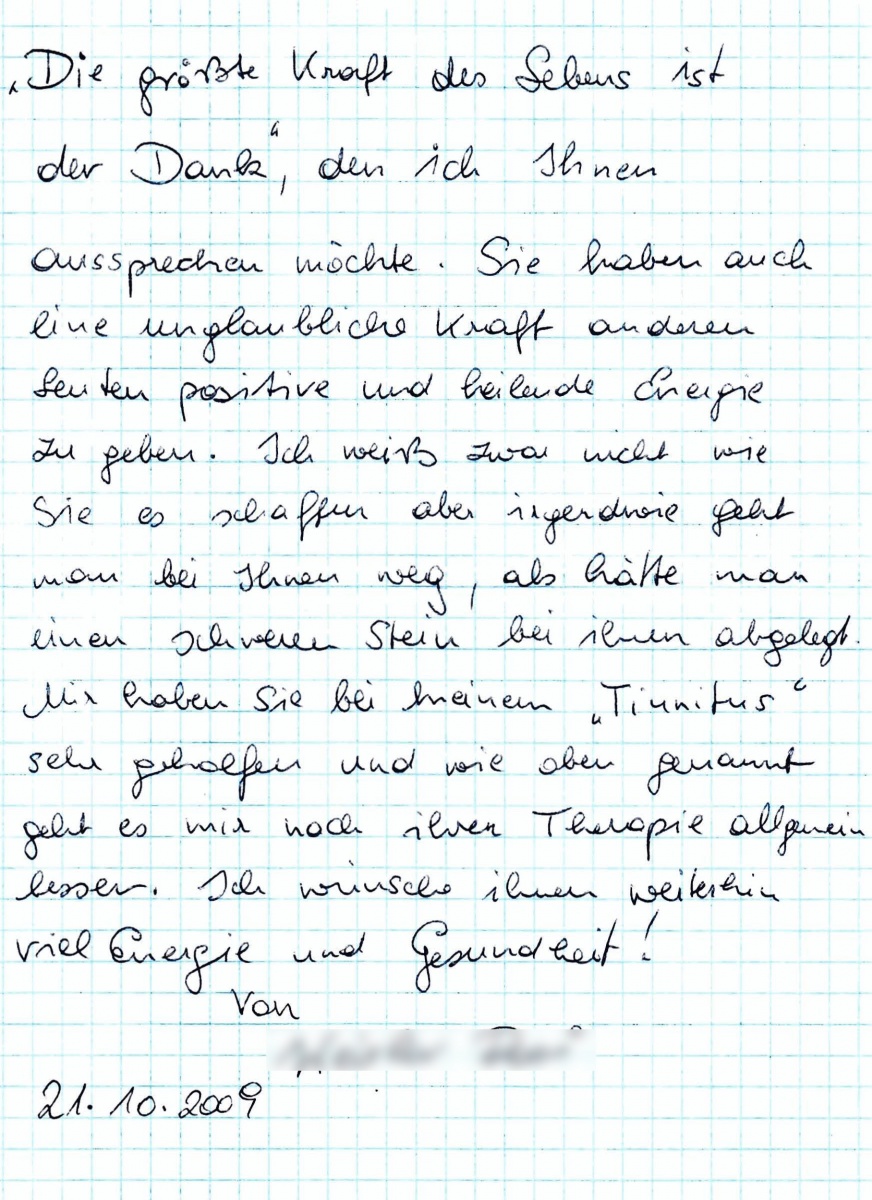 „Die größte Kraft des Lebens ist
der Dank“, den ich Ihnen
aussprechen möchte. Sie haben auch
eine unglaubliche Kraft anderen
Leuten positive und heilende Energie
zu geben. Ich weiß zwar nicht wie
Sie es schaffen aber irgendwie geht
man bei Ihnen weg, als hätte man
einen schweren Stein bei ihnen abgelegt.
Mir haben Sie bei meinem „Tinnitus“
sehr geholfen und wie oben genannt
geht es mir nach ihren Therapie allgemein
besser. Ich wünsche ihnen weiterhin
viel Energie und Gesundheit!
Von
21.10.2009